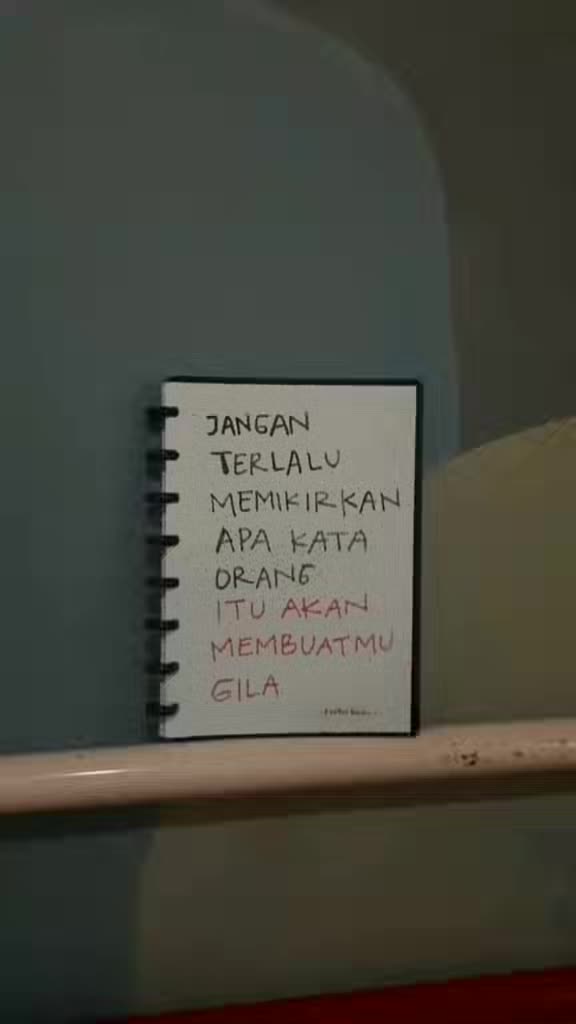 JANGAN
TERLALU
MEMIKIRKAN
APA KATA
ORANG
ITU AKAN
MEMBUATMU
GILA